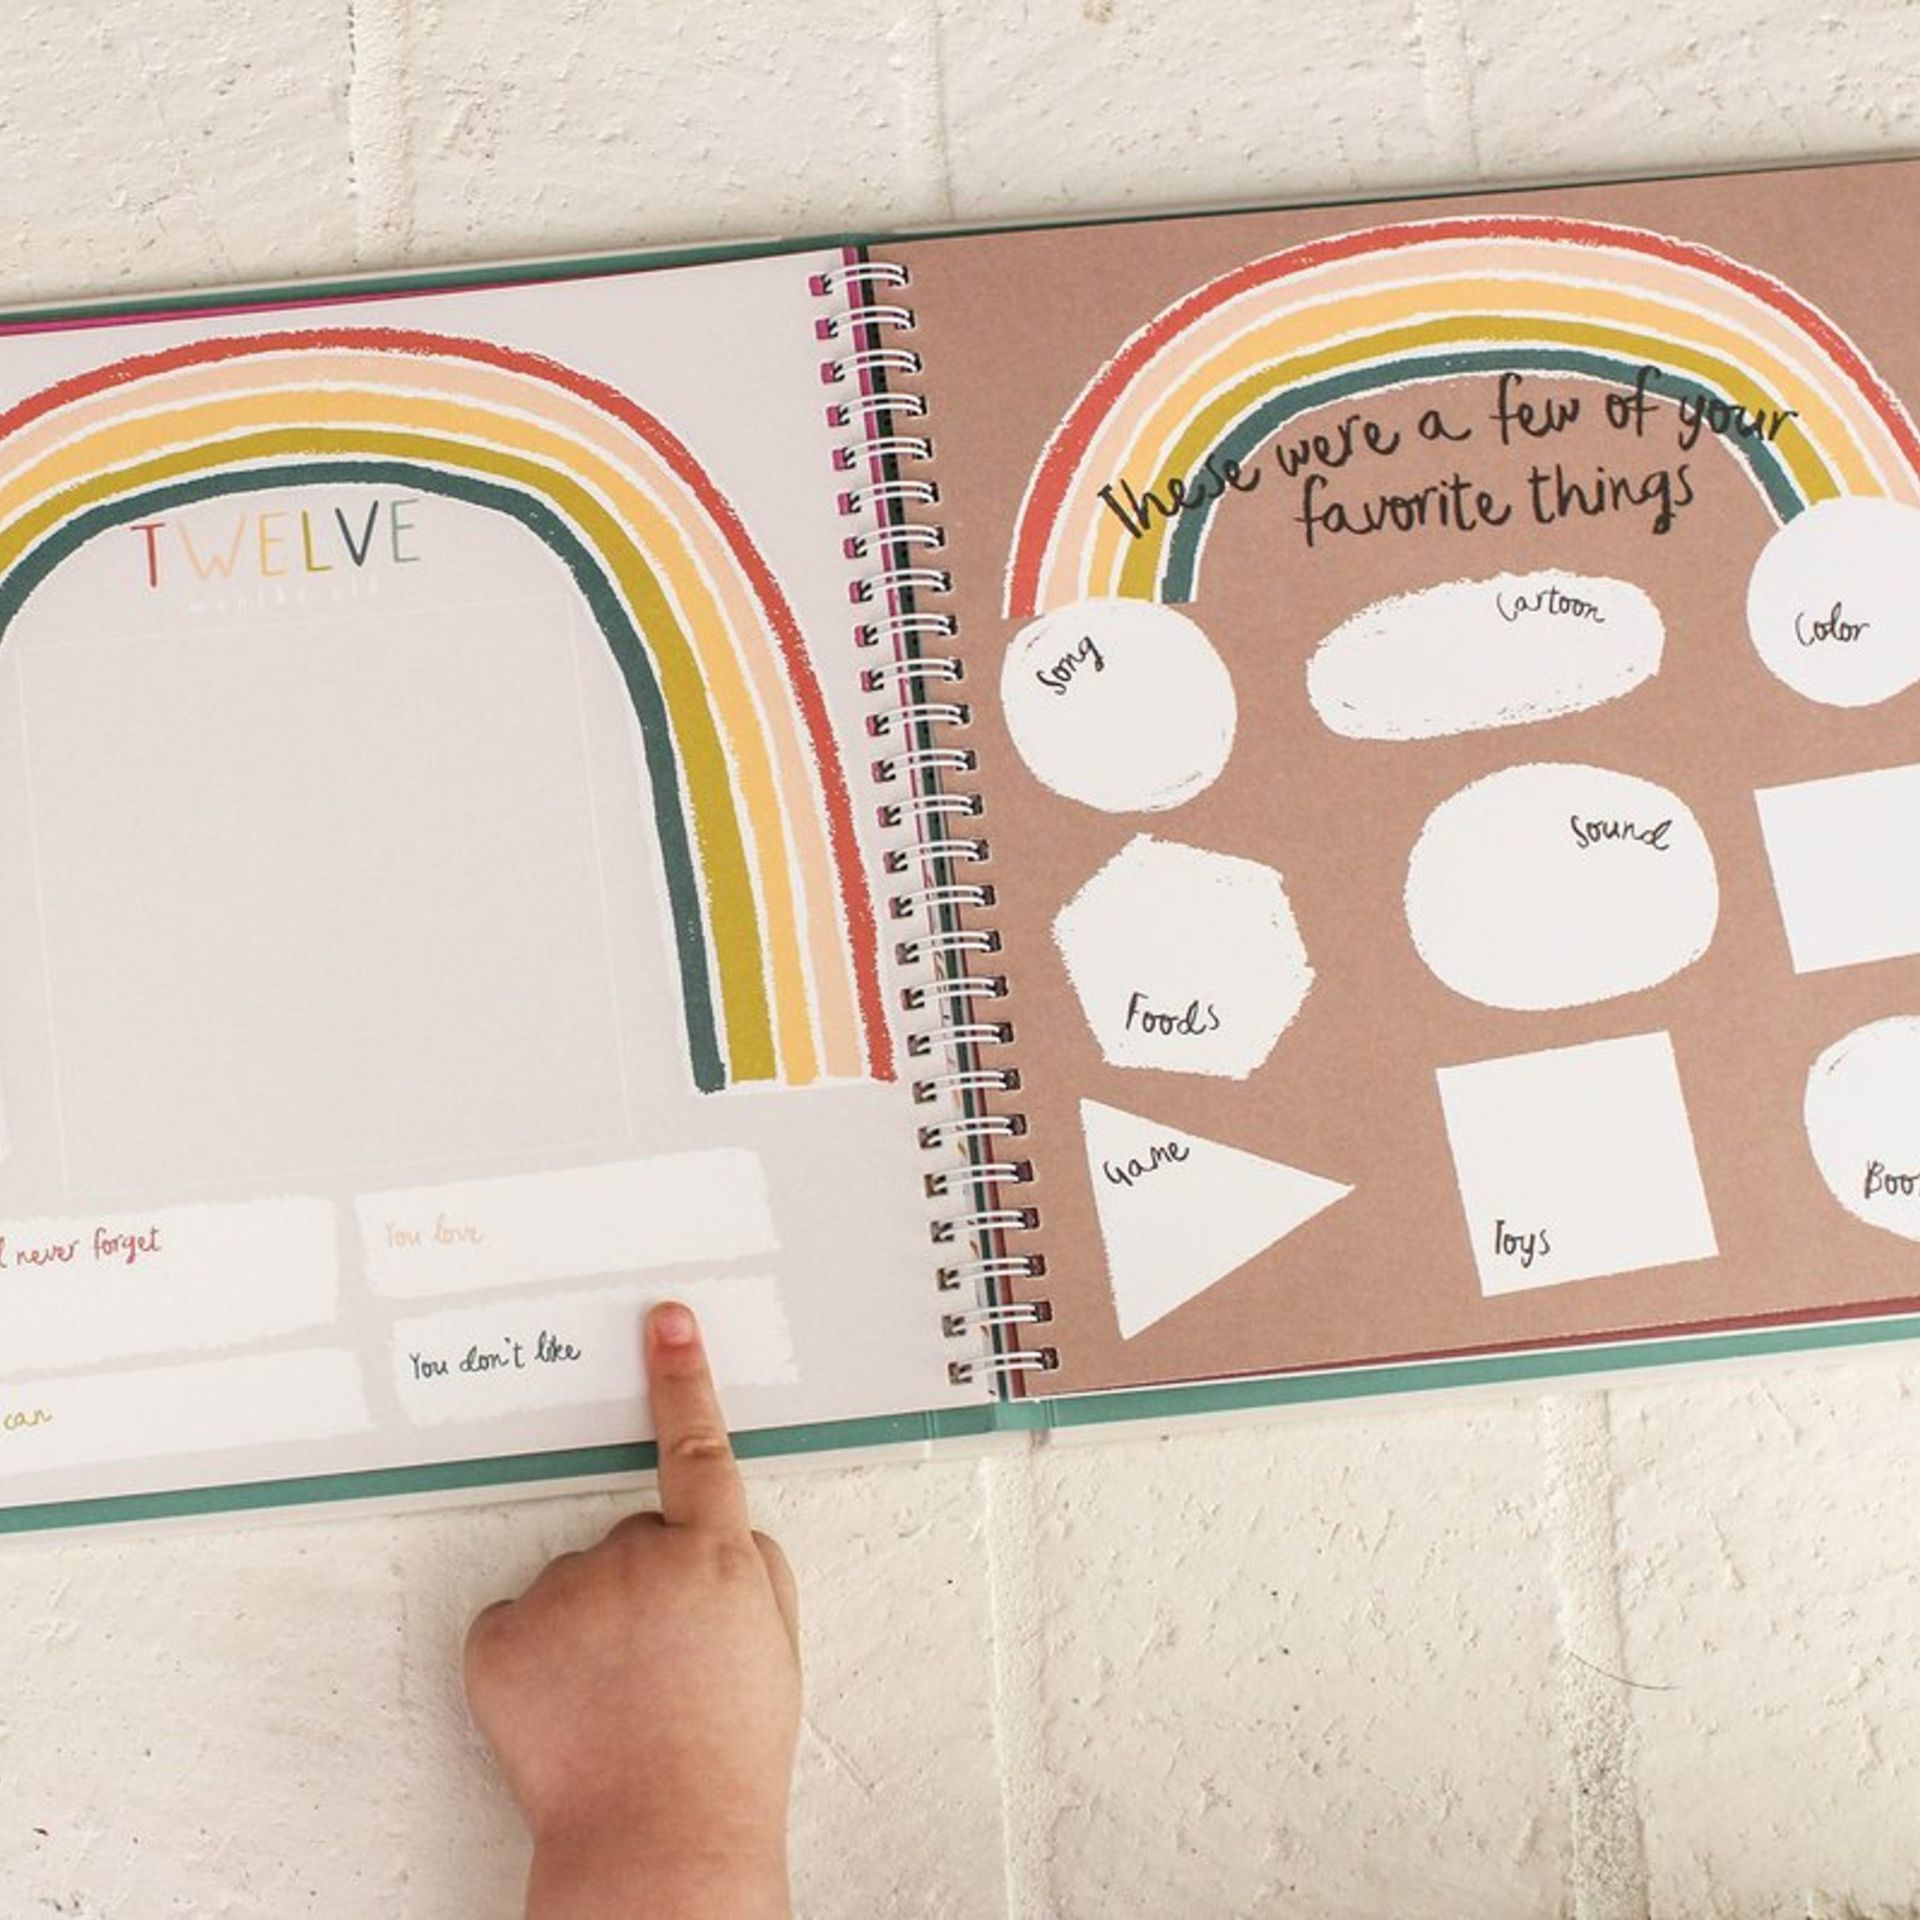 TWELVE
months old
never forget
You love
can
You don't like
These were a few of your
favorite things
Song
Cartoon
Color
Sound
Foods
Game
Toys